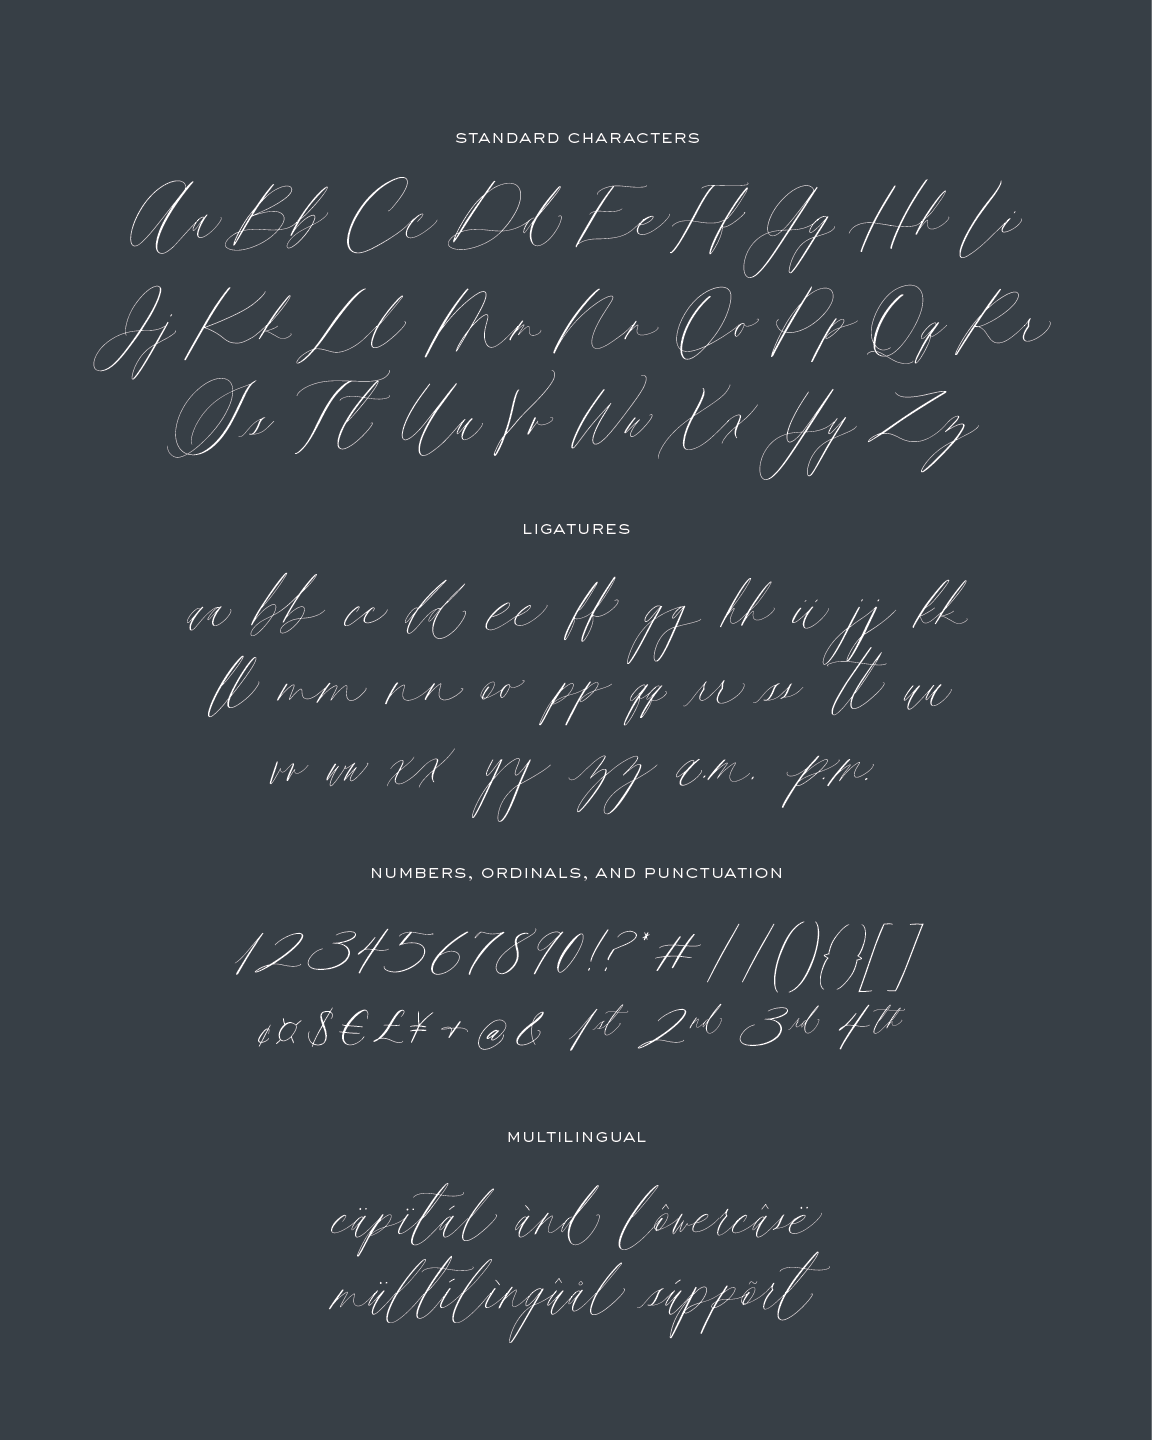 STANDARD CHARACTERS
Aa Bb Cc Dd Ee Ff Gg Hh Ii
Jj Kk Ll Mm Nn Oo Pp Qq Rr
Ss Tt Uu Vv Ww Xx Yy Zz
LIGATURES
aa bb cc dd ee ff gg hh ii jj kk
ll mm nn oo pp qq rr ss tt uu
vv ww xx yy zz a.m. p.m.
NUMBERS, ORDINALS, AND PUNCTUATION
1234567890!?*#//(){}[]
¢¤$€£¥+@& 1st 2nd 3rd 4th
MULTILINGUAL
cäpïtál ànd lôwercâsë
mültílìngûål súppõrt